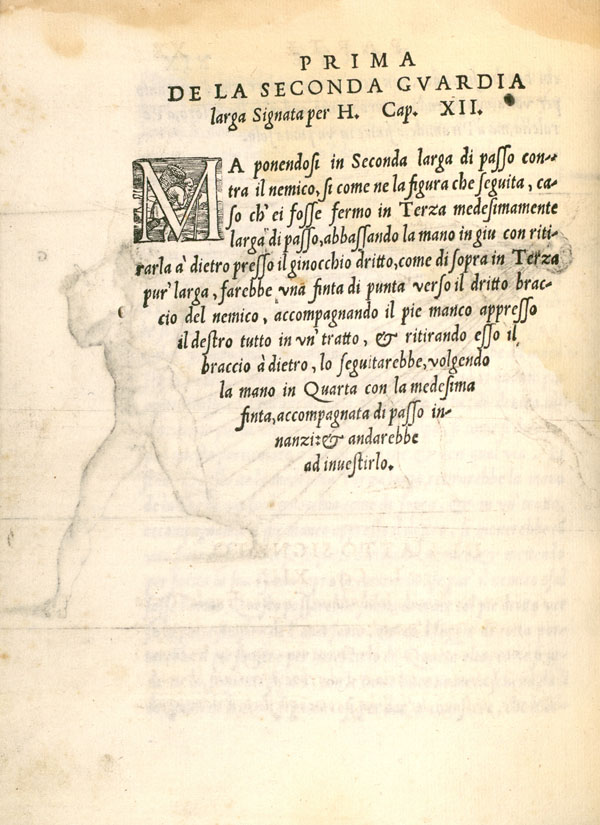 PRIMA
DE LA SECONDA GVARDIA
larga Signata per H. Cap. XII.
MA ponendosi in Seconda larga di passo con-
tra il nemico, si come ne la figura che seguita, ca-
so ch' ei fosse fermo in Terza medesimamente
larga di passo, abbassando la mano in giu con riti-
rarla à dietro presso il ginocchio dritto, come di sopra in Terza
pur' larga, farebbe vna finta di punta verso il dritto brac-
cio del nemico, accompagnando il pie manco appresso
il destro tutto in vn' tratto, & ritirando esso il
braccio à dietro, lo seguitarebbe, volgendo
la mano in Quarta con la medesima
finta, accompagnata di passo in-
nanzi: & andarebbe
ad inuestirlo.